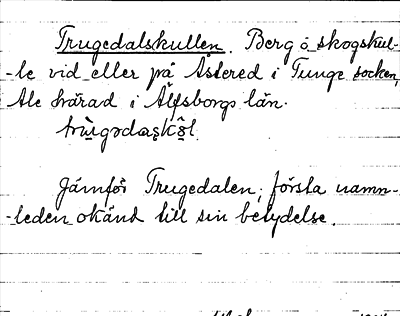 Trugedalskullen. Berg o. skogskul-
-le vid eller på Åstered i Tunge socken,
Ale härad i Älfsborgs län.
Jämför Trugedalen; första namn-
-leden okänd till sin betydelse.